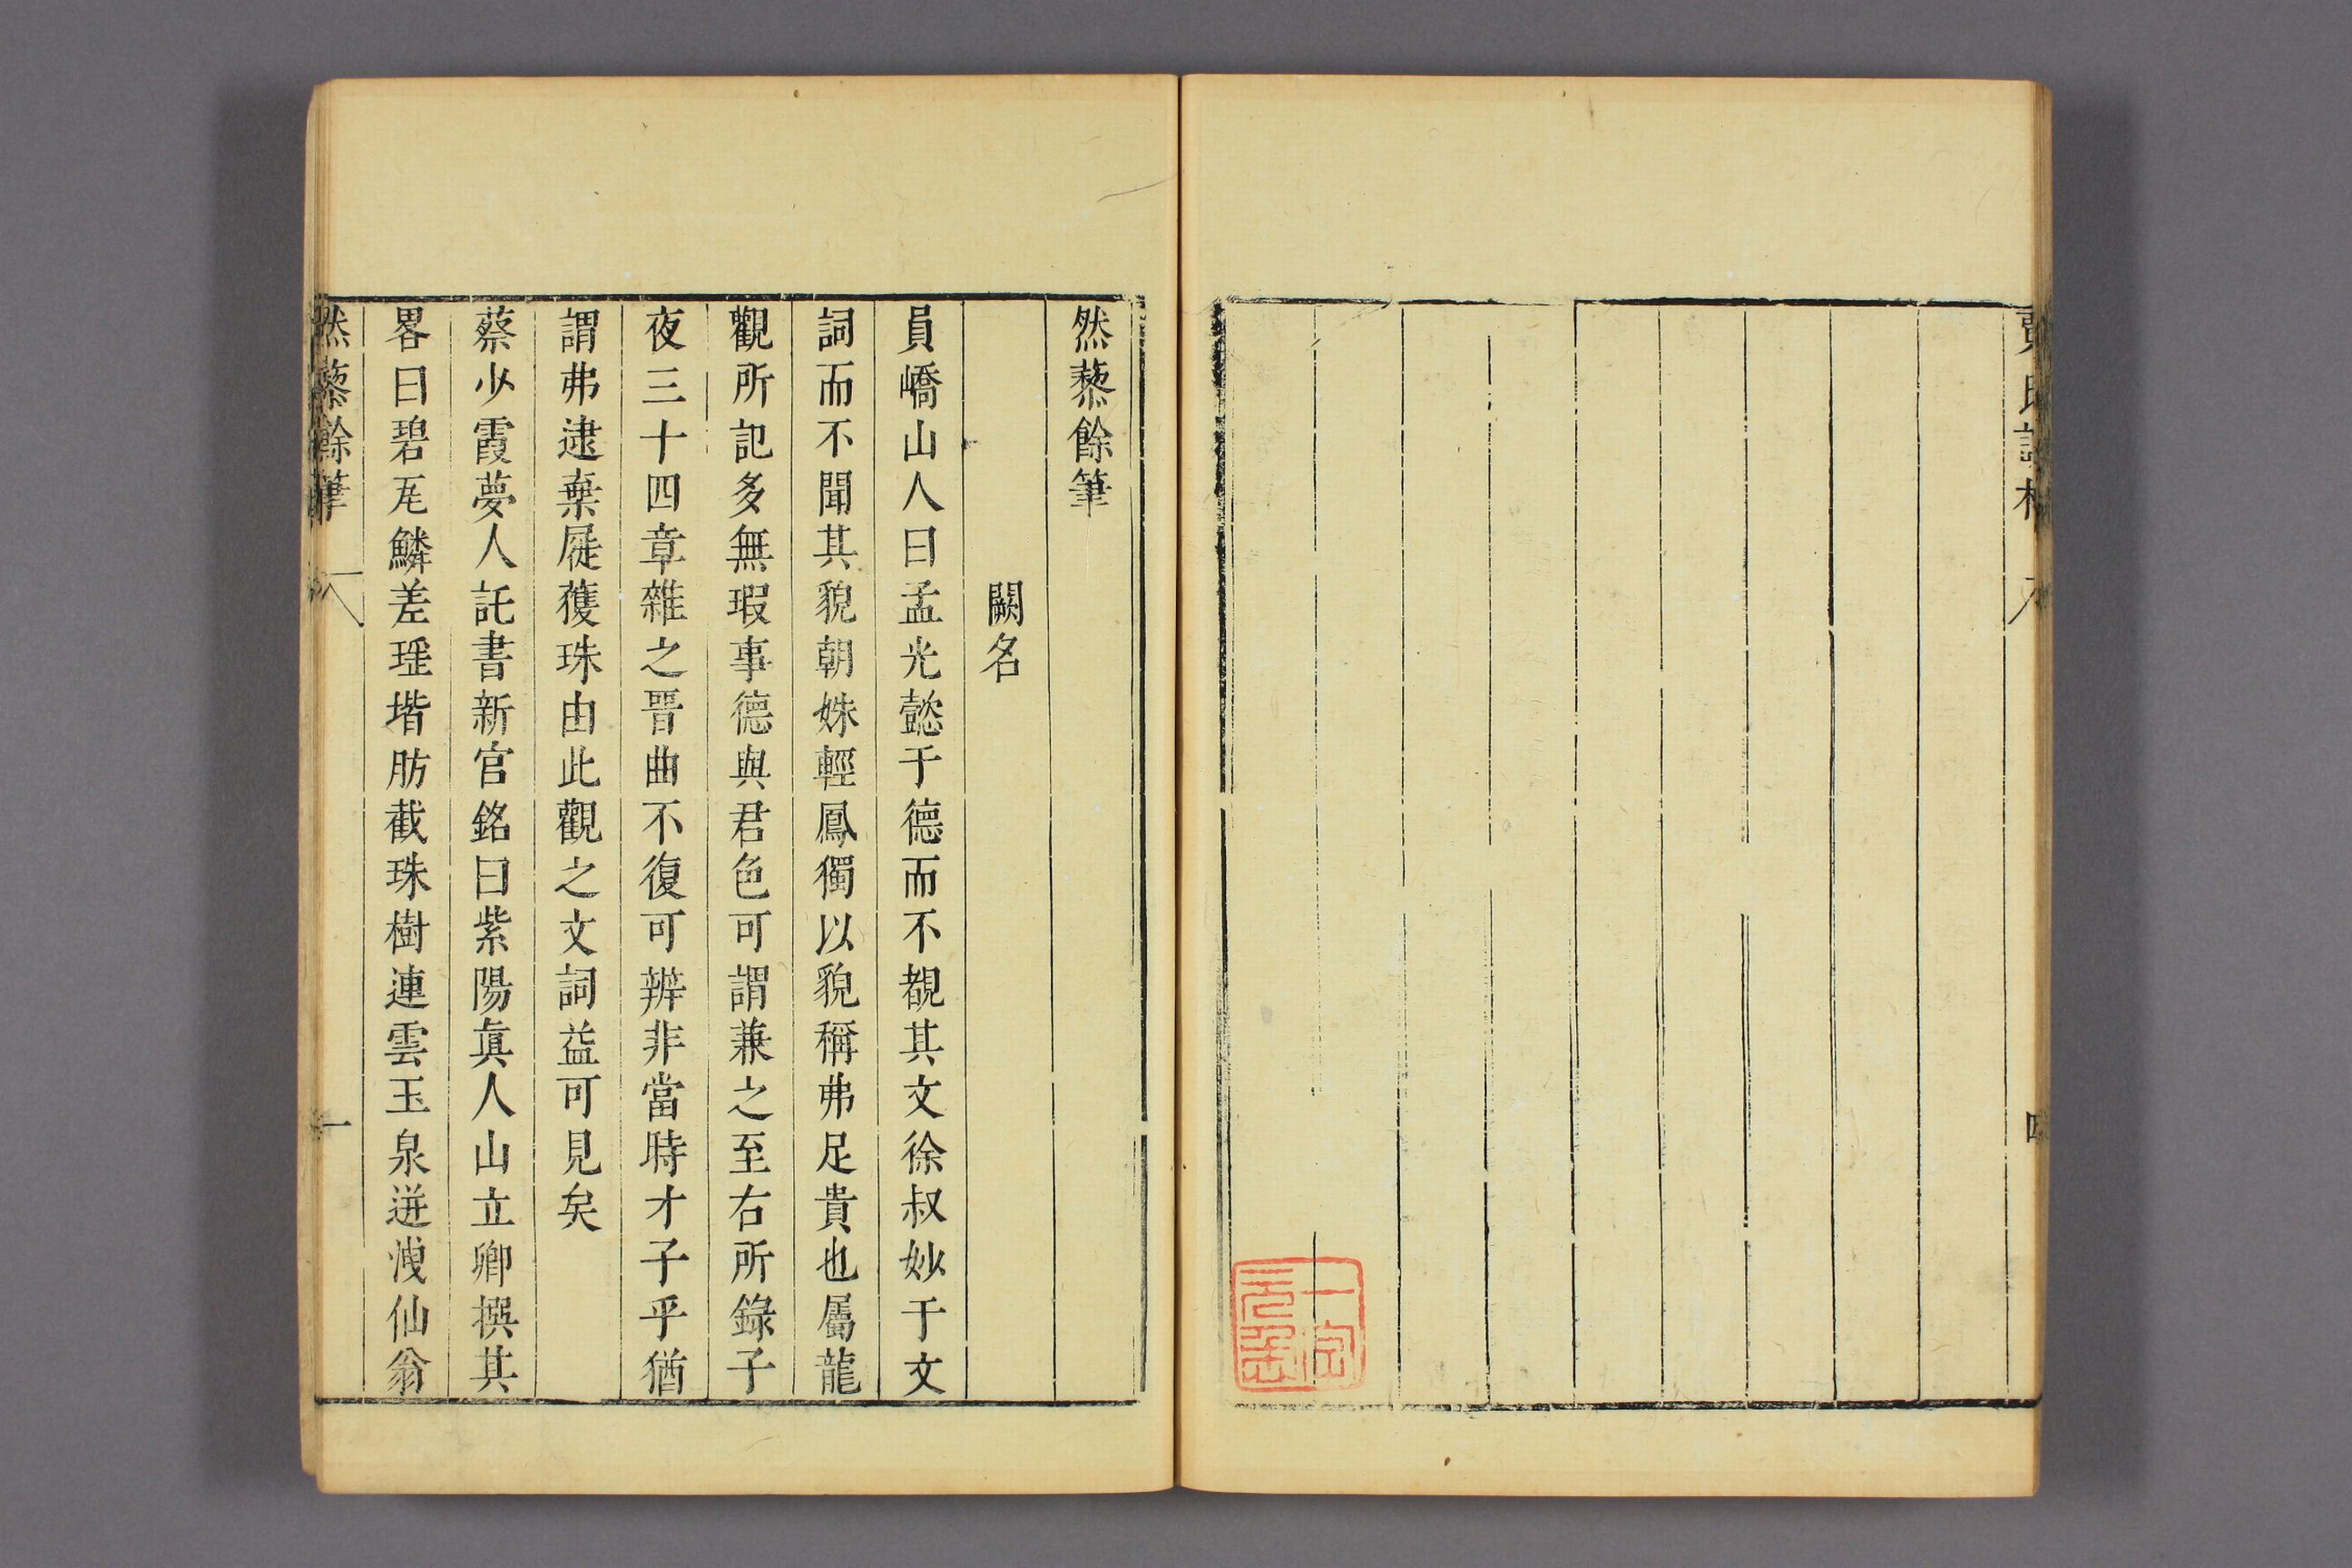 四
然藜餘筆
闕名
員嶠山人曰孟光懿于德而不覩其文徐叔妙于文
詞而不聞其貌朝姝輕鳳獨以貌稱弗足貴也屬龍
觀所記多無瑕事德與君色可謂兼之至右所錄子
夜三十四章雜之晉曲不復可辨非當時才子乎猶
謂弗逮棄屣獲珠由此觀之文詞益可見矣
蔡少霞夢人託書新宮銘曰紫陽眞人山立卿撰其
畧曰碧瓦鱗差瑶堦肪截珠樹連雲玉泉迸洩仙翁
然藜餘筆
一